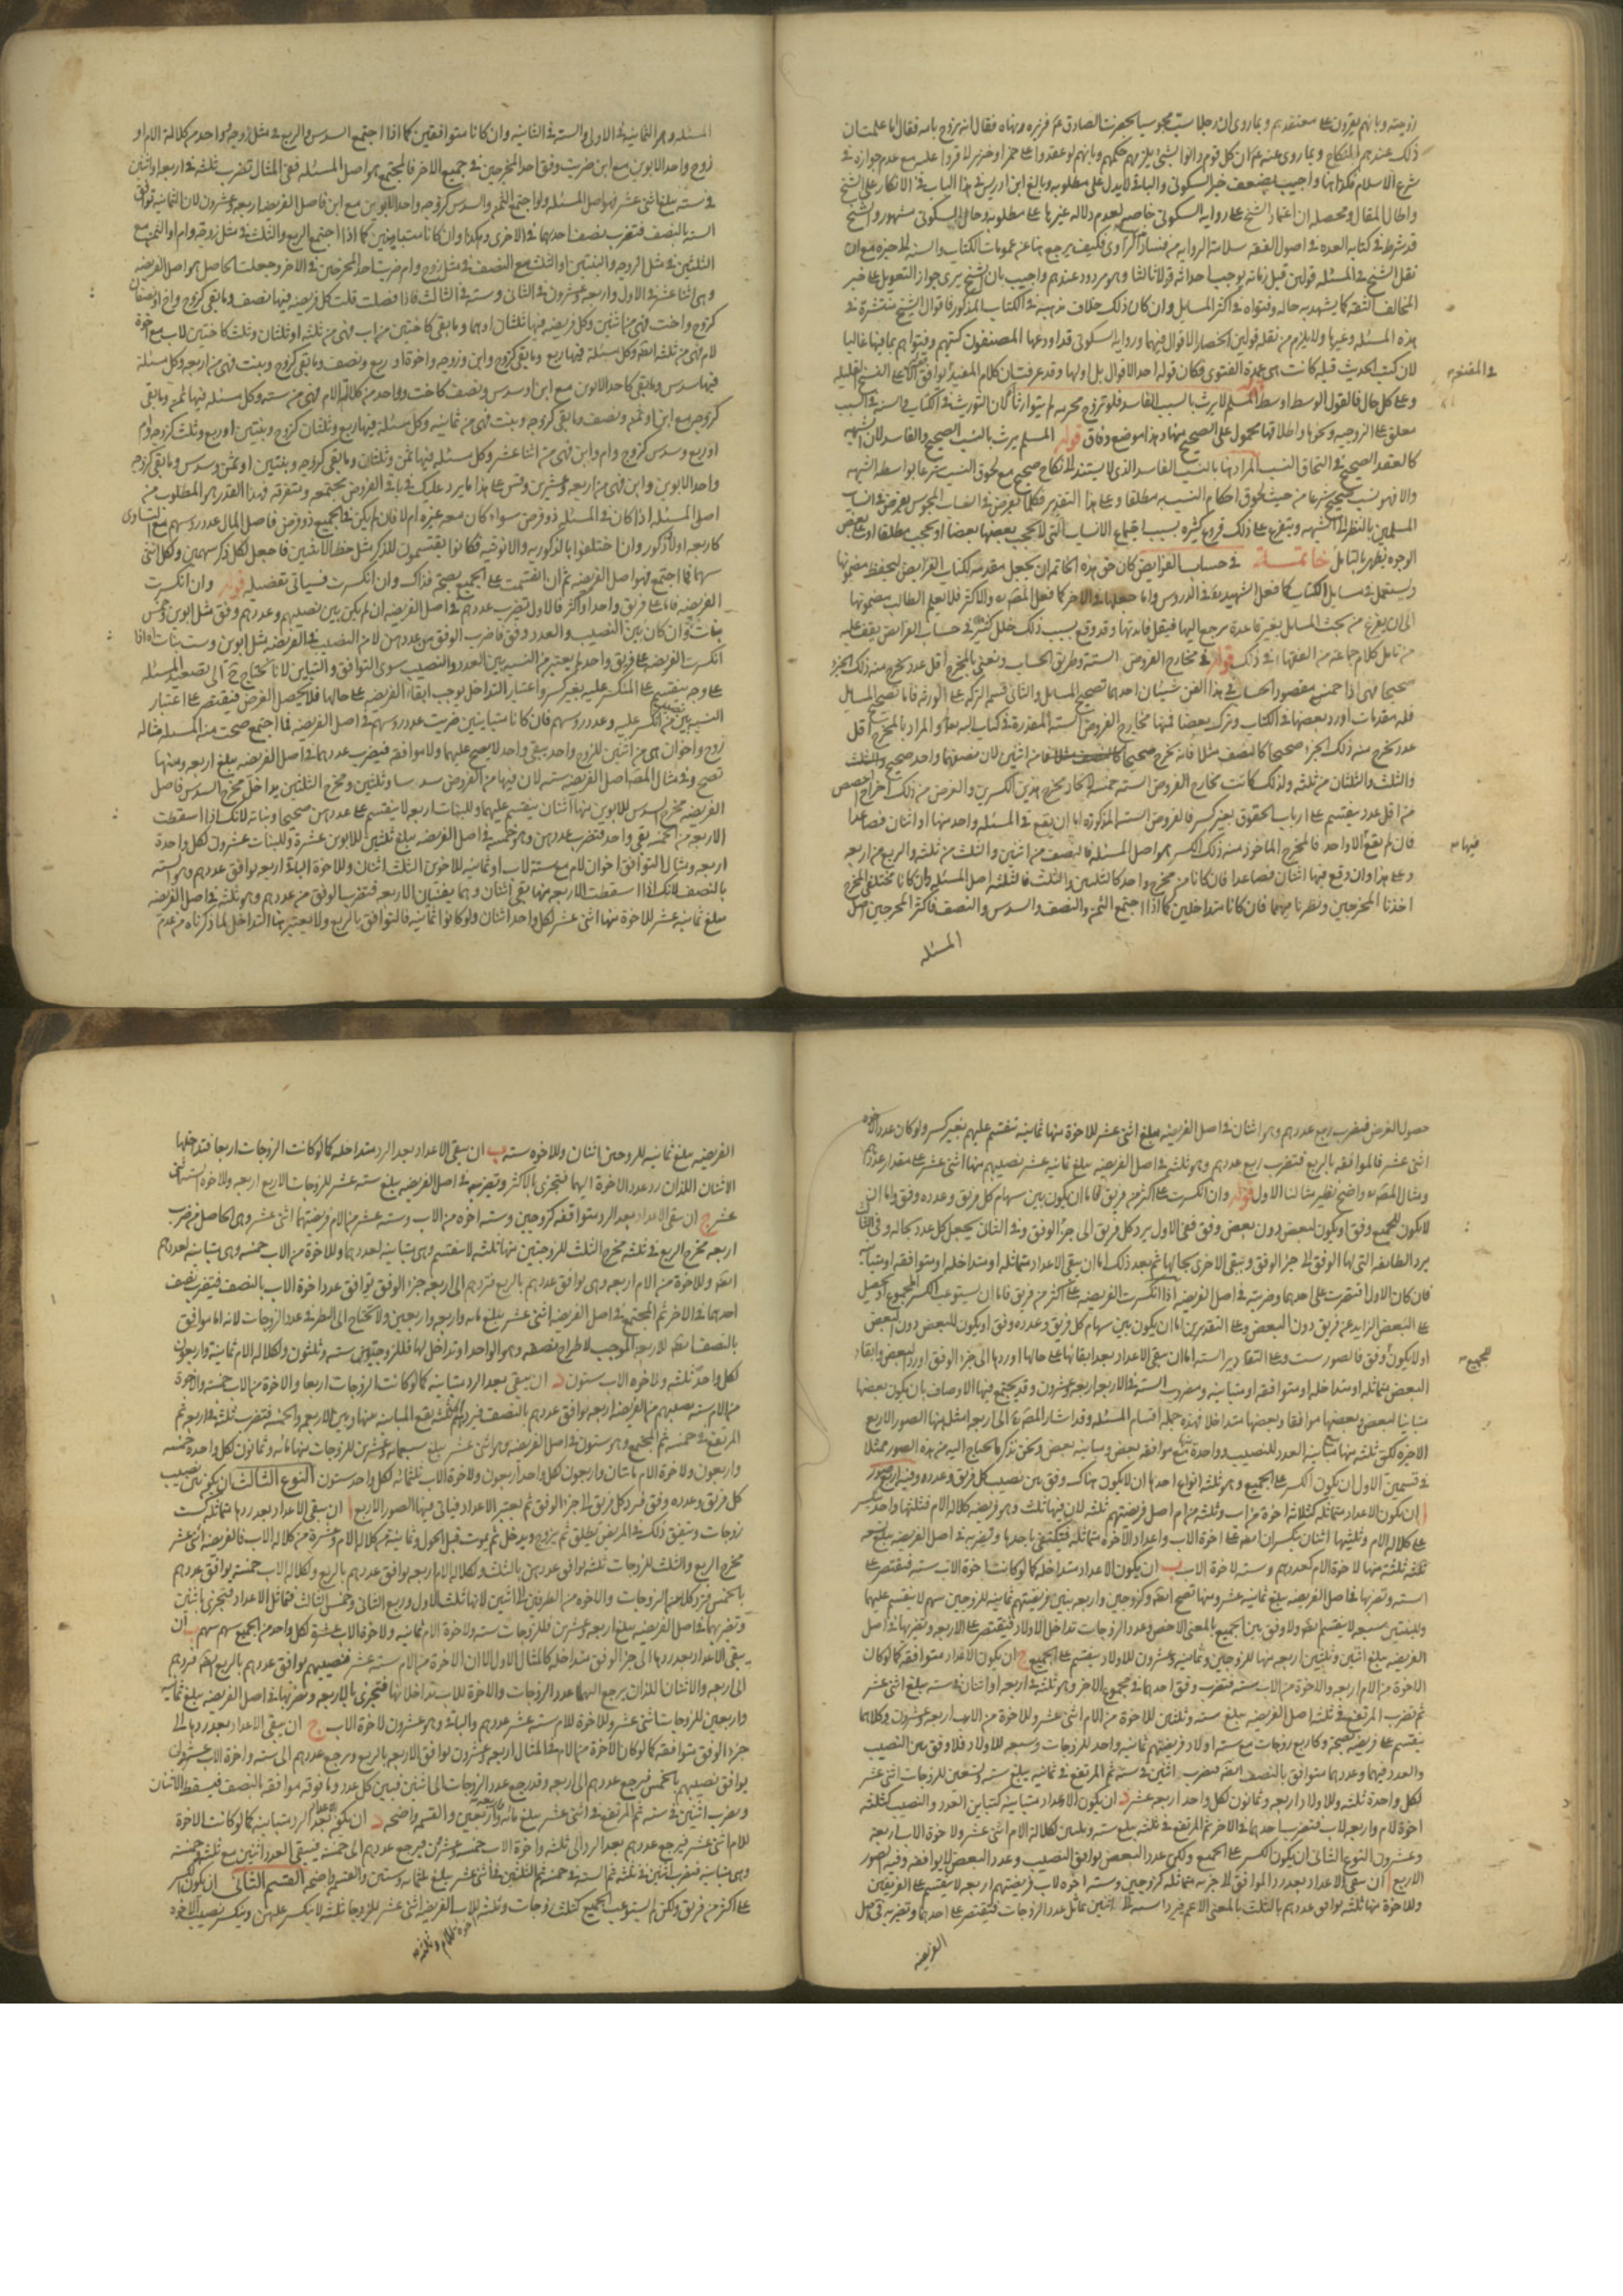 زوجيته وبانهم يقرون على معتقدهم وبما روى ان رجلا سب مجوسيا بحضرت الصادق ع فزبره ونهاه فقال انه تزوج بامه فقال اما علمت ان
ذلك عندهم النكاح وبما روى عنه ع ان كل قوم دانوا بشئ يلزمهم حكمهم وبانهم لو عقدوا على خمر او خنزير لاقروا عليه مع عدم جوازه في
شرع الاسلام فكذا هنا واجيب بضعف خبر السكوني والباقي لا يدل على مطلوبه وبالغ ابن ادريس في هذا الباب في الانكار على الشيخ
واطال المقال ومحصله ان اعتماد الشيخ على رواية السكوني خاصه لعدم دلالة غيرها على مطلوبه وحال السكوني مشهور والشيخ
قد شرط في كتابه العده في اصول الفقه سلامة الروايه من فساد الراوى فكيف يرجع هنا عنه عمومات الكتاب والسنه لخبره مع ان
نقل الشيخ في المسئله قولين قبل زمانه يوجب احداثه قولا ثالثا وهو مردود عندهم واجيب بان الشيخ يرى جواز التعويل على خبر
المخالف الثقه كما يشهد به حاله وفتواه في اكثر المسايل وان كان ذلك خلاف مذهبه في الكتاب المذكور فاقوال الشيخ منتشرة في
هذه المسئله وغيرها ولا يلزم من نقله قولين انحصار الاقوال فيهما ورواية السكوني قد اودعها المصنفون كتبهم وفتواهم بما فيها غالبا
لان كتب الحديث قبله كانت هي عمدة الفتوى فكان قوله احد الاقوال بل اولها وقد عرفت ان كلام المفيد يوافق
في المقنعه
وعلى كل حال فالقول الوسط اوسط قوله المسلم لا يرث بالسبب الفاسد فلو تزوج محرمه لم يتوارثا لان التوريث في الكتاب والسنه في السبب
معلق على الزوجيه ونحوها واطلاقها محمول على الصحيح منها وهذا موضع وفاق قوله المسلم يرث بالنسب الصحيح والفاسد لان الشبهه
كالعقد الصحيح في التحاق النسب المراد هنا بالنسب الفاسد الذي لا يستند الى نكاح صحيح مع لحوق النسب شرعا بواسطه الشبهه
والا فهو نسب صحيح شرعا من حيث لحوق احكام النسب به مطلقا وعلى هذا التقدير فكلما يفرض في انساب المجوس يفرض في انساب
المسلمين بالنظر الى الشبهه ويتفرع على ذلك فروع كثيره بسبب اجتماع الانساب التى لا يحجب بعضها بعضا او يحجب مطلقا او على بعض
الوجوه يظهر بالتامل خاتمسة في حساب الفرايض كان حق هذه الخاتمه ان يجعل مقدمه لكتاب الفرايض ليحفظ مضمونها
ويستعمل في مسايل الكتاب كما فعل الشهيد ره في الدروس واما جعلها في الاخر كما فعل المصره والاكثر فلا يعلم الطالب مضمونها
الى ان يفرغ من بحث المسايل بغير قاعدة مرجع اليها فيقل فايدتها وقد وقع بسبب ذلك خلل كثير في حساب الفرايض يقف عليه
من تامل كلام جماعه من الفقهاء في ذلك قوله في مخارج الفروض الستة وطريق الحساب ونعني بالمخرج اقل عدد يخرج منه ذلك الجزء
صحيحا فهى اذا خمسه مقصود الحساب في هذا الفن شيئان احدهما تصحيح المسايل والثاني قسمة التركه على الورثه فاما تصحيح المسايل
فله مقدمات اورد بعضها في الكتاب وترك بعضا فمنها مخارج الفروض الستة المقدرة في كتاب الله تعالى والمراد بالمخرج اقل
عدد يخرج منه ذلك الجزء صحيحا كالنصف مثلا فانه يخرج صحيحا فانه من اثنين لان نصفهما واحد صحيح
والثلث والثلثان من ثلثه ولذلك كانت مخارج الفروض الستة خمسه لاتحاد مخرج هذين الكسرين والغرض من ذلك اخراج الحصص
من اقل عدد ينقسم على ارباب الحقوق بغير كسر فالفروض الستة المذكوره اما ان يقع في المسئله واحد منها او اثنان فصاعدا
فان لم يقع الا واحد فالمخرج الماخوذ منه ذلك الكسر هو اصل المسئله فالنصف من اثنين والثلث من ثلثه والربع من اربعه
فيها
وعلى هذا وان وقع فيها اثنان فصاعدا فان كانا من مخرج واحد كالثلثين والثلث فالثلثه اصل المسئله وان كانا مختلفى المخرج
اخذنا المخرجين ونظرنا فيهما فان كانا متداخلين كما اذا اجتمع الثمن والنصف والسدس والنصف فاكثر المخرجين اصل
المسئله
المسئله وهو الثمانيه في الاول والسته في الثانيه وان كانا متوافقين كما اذا اجتمع السدس والربع في مثل زوجه وواحد من كلاله الام او
زوج واحد الابوين مع ابن ضربت وفق احد المخرجين في جميع الاخر فالمجتمع هو اصل المسئله ففي المثال تضرب ثلثه في اربعه او اثنين
في سته يبلغ اثنى عشر فهو اصل المسئله ولو اجتمع الثمن والسدس كزوجه واحد الابوين مع ابن فاصل الفريضه اربعه وعشرون لان الثمانيه توافق
السته بالنصف فتضرب نصف احدهما في الاخرى وهكذا وان كانا متباينين كما اذا اجتمع الربع والثلث في مثل زوجه وام او الثمن مع
الثلثين في مثل الزوجه والبنتين او الثلث مع النصف في مثل زوج وام ضربت احد المخرجين في الاخر وجعلت الحاصل هو اصل الفريضه
وهى اثنا عشر في الاول واربعه وعشرون في الثاني وسته في الثالث فاذا فصلت قلت كل فريضه فيها نصف وما بقي كزوج واخ او نصفان
كزوج واخت فهى من اثنين وكل فريضه فيها ثلثان او هما وما بقى كاختين من اب فهى من ثلثه او ثلثان وثلث كاختين لاب مع اخوة
لام فهى من ثلثه ايضا وكل مسئله فيها ربع وما بقى كزوج وابن وزوجه واخوة او ربع ونصف وما بقى كزوج وبنت فهى من اربعه وكل مسئله
فيها سدس وما بقى كاحد الابوين مع ابن او سدس ونصف كاخت وواحد من كلاله الام فهى من سته وكل مسئله فيها ثمن وما بقى
كزوجه مع ابن او ثمن ونصف وما بقى كزوجه وبنت فهى من ثمانيه وكل مسئله فيها ربع وثلثان كزوج وبنتين او ربع وثلث كزوجه وام
او ربع وسدس كزوج وام وابن فهى من اثنا عشر وكل مسئله فيها ثمن وثلثان وما بقى كزوجه وبنتين او ثمن وسدس وما بقى كزوجه
واحد الابوين وابن فهى من اربعه وعشرين وقس على هذا ما يرد عليك في باقي الفروض مجتمعه ومتفرقه فهذا القدر هو المطلوب من
اصل المسئله اذا كان في المسئله ذو فرض سواء كان معه غيره ام لا فان لم يكن في الجميع ذو فرض فاصل المال عدد روسهم مع التساوى
كاربعه اولاد ذكور وان اختلفوا بالذكوريه والانوثيه فكانوا يقتسمون للذكر مثل حظ الانثيين فاجعل لكل ذكر سهمين ولكل انثى
سهما فما اجتمع فهو اصل الفريضه ثم ان انقسمت على الجميع بصحة فذاك وان انكسرت فسياتي تفصيله قوله وان انكسرت
الفريضه فاما على فريق واحد او اكثر فالاول تضرب عددهم في اصل الفريضه ان لم يكن بين نصيبهم وعددهم وفق مثل ابوين وخمس
بنات وان كان بين النصيب والعدد وفق فاضرب الوفق من عددهن لا من النصيب في الفريضه مثل ابوين وست بنات اه اذا
انكسرت الفريضه على فريق واحد لم يعتبر من النسب بين العدد والنصيب سوى التوافق والتباين لانا نحتاج ح الى تصعيد المسئله
على وجه ينقسم على المنكسر عليه بغير كسر واعتبار التداخل يوجب ابقاء الفريضه على حالها فلا يحصل الغرض فيقتصر على اعتبار
النسبه بين نصيب من انكسر عليه وعدد روسهم فان كانا متباينين ضربت عدد روسهم في اصل الفريضه فما اجتمع صحت منه المسئله مثاله
زوج واخوان هى من اثنين للزوج واحد يبقى واحد لا يصح عليهما ولا موافقه فيضرب عددهما في اصل الفريضه يبلغ اربعه ومنها
تصح وفي مثال المصنف اصل الفريضه سته لان فيها من الفروض سدسا وثلثين ومخرج الثلثين يداخل مخرج السدس فاصل
الفريضه مخرج السدس للابوين منها اثنان ينقسم عليهما وللبنات اربعه لا ينقسم على عددهن صحيحا وتباينه لانك اذا اسقطت
الاربعه من الخمسه بقى واحد فتضرب عددهن وهو خمسه في اصل الفريضه يبلغ ثلثين للابوين عشرة وللبنات عشرون لكل واحدة
اربعه ومثال التوافق اخوان لام مع سته لاب او ثمانيه للاخوين الثلث اثنان وللاخوة الباقي اربعه توافق عددهم وهو السته
بالنصف لانك اذا اسقطت الاربعه منها بقى اثنان وهما يفنيان الاربعه فتضرب الوفق من عددهم وهو ثلثه في اصل الفريضه
يبلغ ثمانيه عشر للاخوة منها اثنى عشر لكل واحد اثنان ولو كانوا ثمانيه فالتوافق بالربع ولا يعتبر هنا التداخل لما ذكرناه من عدم
حصول الغرض فيضرب ربع عددهم وهو اثنان في اصل الفريضه يبلغ اثنى عشر للاخوة منها ثمانيه تنقسم عليهم بغير كسر ولو كان عدد الاخوه
اثنى عشر فالموافقه بالربع فتضرب ربع عددهم وهو ثلثه في اصل الفريضه يبلغ ثمانيه عشر نصيبهم منها اثنى عشر على مقدار عددهم
ومثال المصره واضح نظير مثالنا الاول قوله وان انكسرت على اكثر من فريق فاما ان يكون بين سهام كل فريق وعدده وفق واما ان
لا يكون للجميع وفق او يكون لبعض دون بعض وفق ففي الاول يرد كل فريق الى جزء الوفق وفي الثاني يجعل كل عدد بحاله وفي الثالث
يرد الطائفه التى لها الوفق الى جزء الوفق ويبقى الاخرى بحالها ثم بعد ذلك اما ان يبقى الاعداد متماثله او متداخله او متوافقه او متباينه
فان كان الاول اقتصرت على احدهما وضربته في اصل الفريضه اذا انكسرت الفريضه على اكثر من فريق فاما ان يستوعب الكسر المجموع او يحصل
على البعض الزايد عن فريق دون البعض وعلى التقديرين اما ان يكون بين سهام كل فريق وعدده وفق او يكون للبعض دون البعض
او لا يكون وفق فالصور ست وعلى التقادير السته اما ان يبقى الاعداد بعد ابقائها على حالها او ردها الى جزء الوفق او رد البعض وابقاء
للجميع
البعض متماثله او متداخله او متوافقه او متباينه ومضروب السته في الاربعه اربعه وعشرون وقد يجتمع فيها الاوصاف بان يكون بعضها
مباينا لبعض وبعضها موافقا وبعضها متداخلا فهذه جمله اقسام المسئله وقد اشار المصره الى اربعه امثله منها الصور الاربع
الاخيرة لكن ثلثه منها مع مباينه العدد للنصيب وواحدة مع موافقه بعض ومباينه بعض ونحن نذكر ما يحتاج اليه من هذه الصور ممثلا
في قسمين الاول ان يكون الكسر على الجميع وهو ثلثه انواع احدها ان لا يكون هناك وفق بين نصيب كل فريق وعدده وفيه اربع صور
ا ان يكون الاعداد متماثله كثلاثه اخوة من اب وثلثه من ام اصل فريضتهم ثلثه لان فيها ثلث وهو فريضه كلاله الام فثلثها واحد ينكسر
على كلاله الام وثلثيها اثنان ينكسران ايضا على اخوة الاب واعداد الاخوه متماثله فتكتفي باحدها وتضربه في اصل الفريضه يبلغ تسعه
ثلثه منها لاخوة الام كعددهم وسته لاخوة الاب ب ان يكون الاعداد متداخله كما لو كانت اخوة الاب سته فيقتصر على
السته وتضربها في اصل الفريضه يبلغ ثمانيه عشر ومنها تصح ايضا وكزوجين واربعه بنين فريضتهم ثمانيه للزوجين سهم لا ينقسم عليهما
وللبنين سبعه لا ينقسم ايضا ولا وفق بين الجميع بالمعنى الاخص وعدد الزوجات تداخل الاولاد فيقتصر على الاربعه وتضربها في اصل
الفريضه يبلغ اثنين وثلثين اربعه منها للزوجين وثمانيه وعشرون للاولاد ينقسم على الجميع ج ان يكون الاعداد متوافقه كما لو كان
الاخوة من الام اربعه والاخوة من الاب سته فتضرب وفق احدهما في مجموع الاخر وهو ثلثه في اربعه او اثنان في سته يبلغ اثنى عشر
ثم تضرب المرتفع في ثلثه اصل الفريضه يبلغ سته وثلثين للاخوة من الام اثنى عشر وللاخوة من الاب اربعه وعشرون وكلاهما
ينقسم على فريقه بصحة وكاربع زوجات مع سته اولاد فريضتهم ثمانيه واحد للزوجات وسبعه للاولاد فلا وفق بين النصيب
والعدد فيهما وعددهما متوافق بالنصف ايضا فتضرب اثنين في سته ثم المرتفع في ثمانيه يبلغ سته وتسعين للزوجات اثنى عشر
لكل واحدة ثلثه وللاولاد اربعه وثمانون لكل واحد اربعه عشر د ان يكون الاعداد متباينه كتباين العدد والنصيب كثلثه
اخوة لام واربعه لاب فتضرب احدهما في الاخر ثم المرتفع في ثلثه يبلغ سته وثلثين لكلاله الام اثنى عشر ولاخوة الاب اربعه
وعشرون النوع الثاني ان يكون الكسر على الجميع ولكن عدد البعض يوافق النصيب وعدد البعض لا يوافقه وفيه الصور
الاربع ا ان يبقى الاعداد بعد رد الموافق الى جزئه متماثله كزوجين وسته اخوه لاب فريضتهم اربعه لا ينقسم على الفريقين
وللاخوة منها ثلثه توافق عددهم بالثلث بالمعنى الاعم فيرد السته الى اثنين تماثل عدد الزوجات فيقتصر على احدهما وتضربه في اصل
الفريضه
الفريضه يبلغ ثمانيه للزوجين اثنان وللاخوه سته ب ان يبقى الاعداد بعد الرد متداخله كما لو كانت الزوجات اربعا فتداخلها
الاثنان اللذان رد عدد الاخوة اليهما فتجتزى بالاكثر وتضربه في اصل الفريضه يبلغ سته عشر للزوجات الاربع اربعه وللاخوه اثنى
عشر ج ان يبقى الاعداد بعد الرد متوافقه كزوجين وسته اخوه من الاب وسته عشر من الام فريضتهما اثنى عشر وهى الحاصل من ضرب
اربعه مخرج الربع في ثلثه مخرج الثلث للزوجتين منها ثلثه لا ينقسم وهى متباينه لعددهما وللاخوة من الاب خمسه وهى متباينه لعددهم
ايضا وللاخوة من الام اربعه وهى توافق عددهم بالربع فتردهم الى اربعه جزء الوفق توافق عدد اخوة الاب بالنصف فيضرب نصف
احدهما في الاخر ثم المجتمع في اصل الفريضه اثنى عشر يبلغ مائه واربعه واربعين ولا تحتاج الى النظر في عدد الزوجات لانه اما موافق
بالنصف ايضا للاربعه الموجب لاطراح نصفه وهو الواحد او تداخل لها فللزوجتين سته وثلثون ولكلاله الام ثمانيه واربعون
لكل واحد ثلثه ولاخوة الاب ستون د ان يبقى بعد الرد متباينه كما لو كانت الزوجات اربعا والاخوة من الاب خمسه والاخوة
من الام سته نصيبهم من الفريضه اربعه يوافق عددهم بالنصف فيردهم الى ثلثه يقع المباينه بينها وبين الاربعه والخمسه فتضرب ثلثه في اربعه ثم
المرتفع في خمسه ثم المجتمع وهو ستون في اصل الفريضه وهو اثنى عشر يبلغ سبعمائه وعشرين للزوجات منها مائه وثمانون لكل واحدة خمسه
واربعون ولاخوة الام ماتان واربعون لكل واحد اربعون ولاخوة الاب ثلثمائه لكل واحد ستون النوع الثالث ان يكون بين نصيب
كل فريق وعدده وفق فيرد كل فريق الى جزء الوفق ثم يعتبر الاعداد فياتي فيها الصور الاربع ا ان يبقى الاعداد بعد ردها متماثله كست
زوجات ويتفق ذلك في المريض يطلق ثم يتزوج ويدخل ثم يموت قبل الحول وثمانيه من كلاله الام وعشرة من كلاله الاب فالفريضه اثنى عشر
مخرج الربع والثلث للزوجات ثلثه توافق عددهن بالثلث ولكلاله الام اربعه توافق عددهم بالربع ولكلاله الاب خمسه توافق عددهم
بالخمس فترد كلا من الزوجات والاخوه من الطرفين الى اثنين لانهما ثلث الاول وربع الثاني وخمس الثالث فتماثل الاعداد فتجتزى باثنين
وتضربهما في اصل الفريضه يبلغ اربعه وعشرين فللزوجات سته ولاخوة الام ثمانيه ولاخوة الاب عشرة لكل واحد من الجميع سهم ب ان
يبقى الاعداد بعد ردها الى جزء الوفق متداخله كالمثال الاول الا ان الاخوة من الام سته عشر فنصيبهم يوافق عددهم بالربع ايضا فتردهم
الى اربعه والاثنان اللذان يرجع اليهما عدد الزوجات والاخوة للاب تداخلانها فتجتزى بالاربعه وتضربها في اصل الفريضه يبلغ ثمانيه
واربعين للزوجات اثنى عشر وللاخوة للام سته عشر عددهم والباقي وهو عشرون لاخوة الاب ج ان يبقى الاعداد بعد ردها الى
جزء الوفق متوافقه كما لو كان الاخوة من الام في المثال اربعه وعشرون توافق الاربعه بالربع ويرجع عددهم الى سته واخوة الاب عشرون
يوافق نصيبهم بالخمس فيرجع عددهم الى اربعه وقد رجع عدد الزوجات الى اثنين فبين كل عدد وما فوقه موافقه بالنصف فيسقط الاثنان
وتضرب اثنين في سته ثم المرتفع في اثنى عشر يبلغ مائه واربعه واربعين والقسمه واضحه د ان يكون بعد الرد متباينه كما لو كانت الاخوة
للام اثنى عشر فيرجع عددهم بعد الرد الى ثلثه واخوة الاب خمسه وعشرين فيرجع عددهم الى خمسه فيبقى العدد اثنين مع ثلثه وخمسه
وهى متباينه فتضرب اثنين في ثلثه ثم السته في خمسه ثم الثلثين في اثنى عشر يبلغ ثلثمائه وستين والقسمه واضحه القسم الثاني ان يكون الكسر
على اكثر من فريق ولكن لم يستوعب الجميع كثلث زوجات وثلثه اخوة للام وثلثه للاب الفريضه اثنى عشر للزوجات ثلثه لا ينكسر عليهن وينكسر نصيب الاخوه